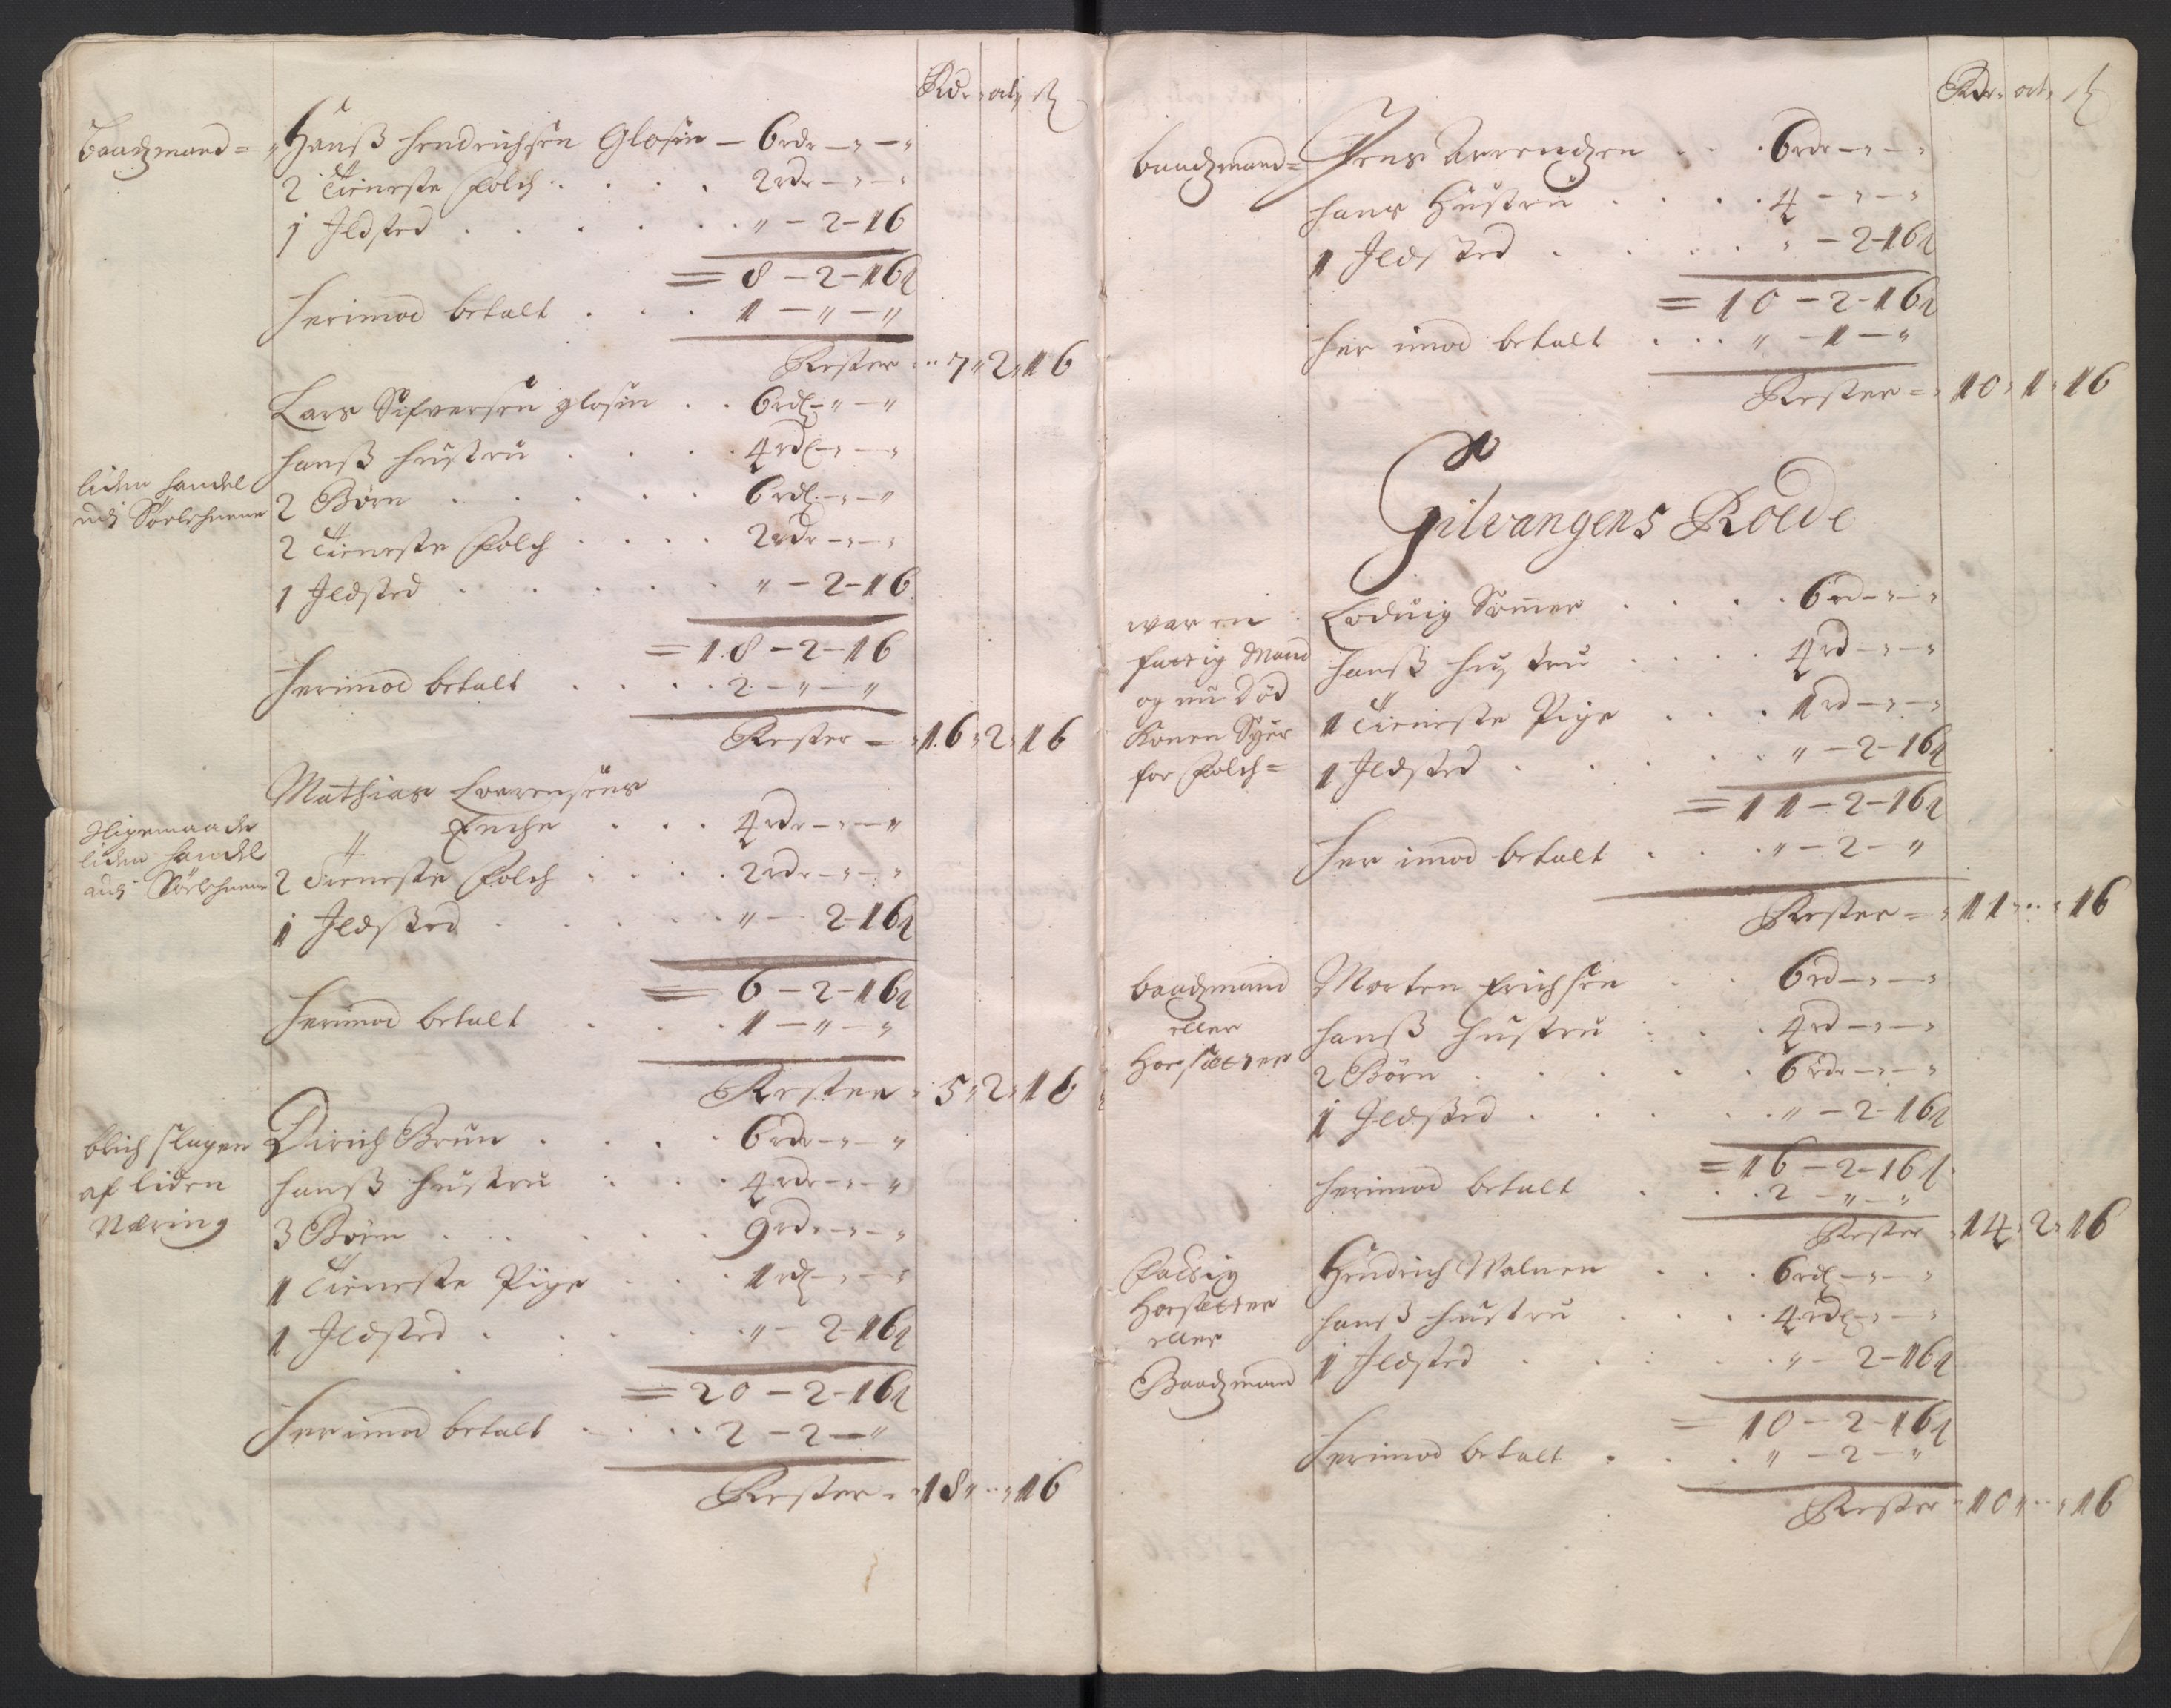 Rdr ort ß
baadzmand = Hanß Hendrichsen Glosin — 6 rdr — " — "
2 Tieneste Folch . . . . 2 rdr — " — "
1 Ildsted . . . . . . " — 2 — 16
= 8 — 2 — 16 ß
Herimod betalt . . . 1 — " — "
Rester . . 7 " 2 " 16
Lars Sifversen glosin . . 6 rdl — " — "
hanß hustru . . . . 4 rdl — " — "
liden handel
2 Börn . . . . . . 6 rdl — " — "
2 Tieneste Folch . . . . 2 rdr — " — "
1 Ildsted . . . . . . " — 2 — 16
= 18 — 2 — 16
Herimod betalt . . . . 2 — " — "
Rester — " 16 " 2 " 16
Mathias Lorensens
ligemaade
" Enche . . . 4 rdr — " — "
liden handel
2 Tieneste Folch . . . . 2 rdr — " — "
1 Ildsted . . . . . " — 2 — 16 ß
= 6 — 2 — 16 ß
Herimod betalt . . . . 1 — " — "
Rester " 5 " 2 " 16
blich slager
af liden
Næring
Dirich Brun . . . . 6 rdr — " — "
hanß hustru . . . . 4 rdr — " — "
3 Börn . . . . . . 9 rdr — " — "
1 Tieneste Pige . . . 1 rdl — " — "
1 Ildsted . . . . . " — 2 — 16 ß
= 20 — 2 — 16 ß
Herimod betalt . . . . 2 — 2 — "
Rester = " 18 " .. " 16
Rdr ort ß
baadzmand = Jens Arrendzen . . . 6 rdr — " — "
hans Hustru . . . . 4 — " — "
1 Ildsted . . . . . " — 2 — 16 ß
= 10 — 2 — 16 ß
Her imod betalt . . . " — 1 — "
Rester = " 10 " 1 " 16
Gilvangens Roede
war en
fattig Mand
og nu Död
Konen Syer
for Folch =
Lodvig Sommer . . . . 6 rd — " — "
hanß hustru . . . . 4 rd — " — "
1 Tieneste Pige . . . 1 rd — " — "
1 Ildsted . . . . . " — 2 — 16 ß
= 11 — 2 — 16 ß
Her imod betalt . . . . " — 2 — "
Rester = " 11 " .. " 16
baadzmand
eller
Morten Erichsen . . 6 rd — " — "
hanß hustru . . . 4 rd — " — "
2 Börn . . . . . 6 rdr — " — "
1 Ildsted . . . . . " — 2 — 16 ß
= 16 — 2 — 16 ß
Herimod betalt . . . 2 — " — "
Rester " 14 " 2 " 16
Fattig
eller
Baadzmand
Hendrich Walnen . . . 6 rdl — " — "
hanß hustru . . . . 4 rdl — " — "
1 Ildsted . . . . . " — 2 — 16 ß
= 10 — 2 — 16 ß
Herimod betalt . . . " — 2 — "
Rester " 10 " .. " 16